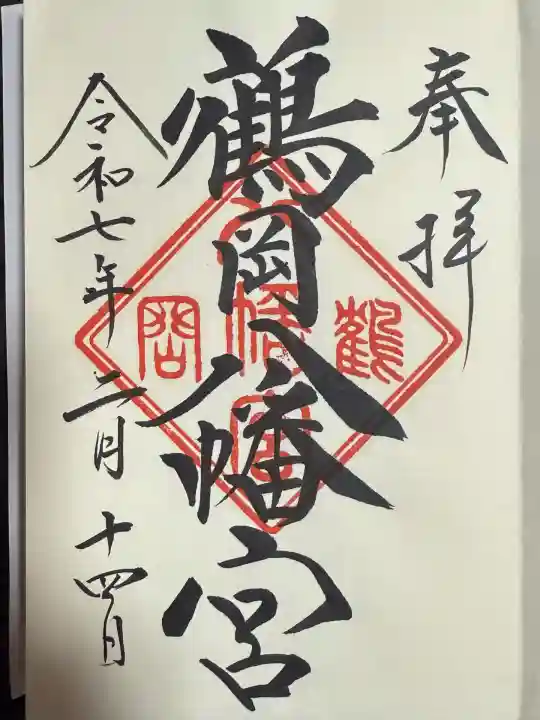 奉拝
鶴岡八幡宮
鶴
岡
八幡宮
令和七年二月十四日